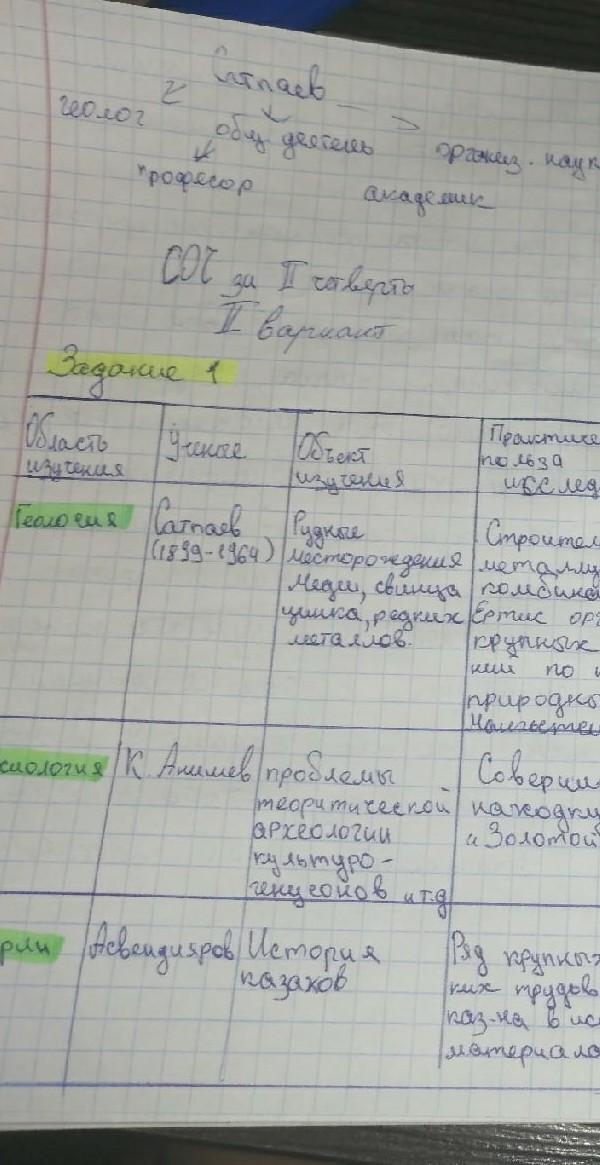 Сатпаев
геолог
общ деятель
организ. наук
професор
академик
СОЧ за II четверть
II вариант
Задание 1
Область изучения
Ученые
Объект изучения
Практиче
польза
исслед
Геология
Сатпаев
(1899-1964)
Рудные
месторождения
меди, свинца
цинка, редких
металлов.
Строител
металлу
комбина
Ертис орг
крупных
ний по и
природны
сиология
К. Акишев
проблемы
теоритической
археологии
культуро-
генусонов и т.д
Соверши
находку
и Золотой
рии
Асвендияров
История
казахов
Ряд крупных
ких трудов
каз-на в ис
материала